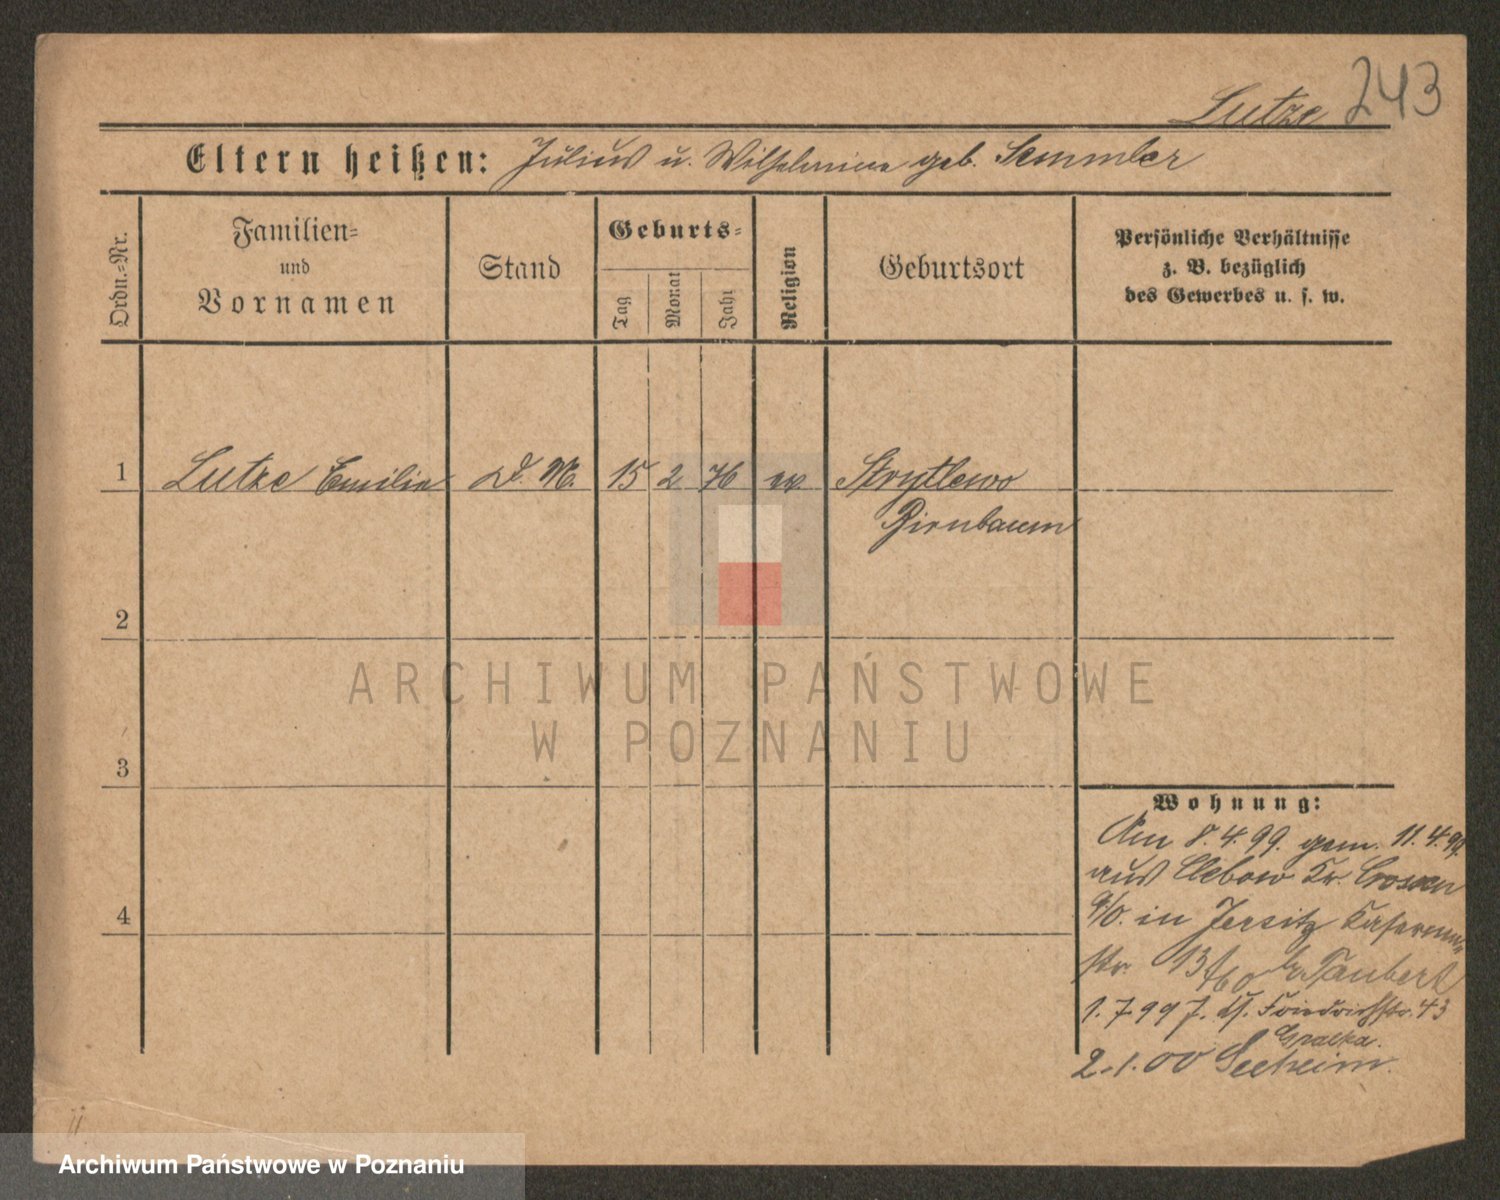 Lutze 243
Eltern heißen: Julius u. Wilhelmine geb. Semmler
Ordn.-Nr.
Familien-
und
Vornamen
Stand
Geburts-
Tag
Monat
Jahr
Religion
Geburtsort
Persönliche Verhältnisse
z. B. bezüglich
des Gewerbes u. s. w.
1 Lutze Emilie D. M. 15 2 76 ev. Strytlewo
Birnbaum
2
3
4
Wohnung:
Am 8.4.99. gem. 11.4.99.
aus Clebow Kr. Crossen
a/O. in Jersitz Kasernen
str. 13 b. Taubert
1.7.99 Friedrichstr. 43
Gratka.
2.1.00 Seeheim.
ARCHIWUM PAŃSTWOWE
W POZNANIU
Archiwum Państwowe w Poznaniu